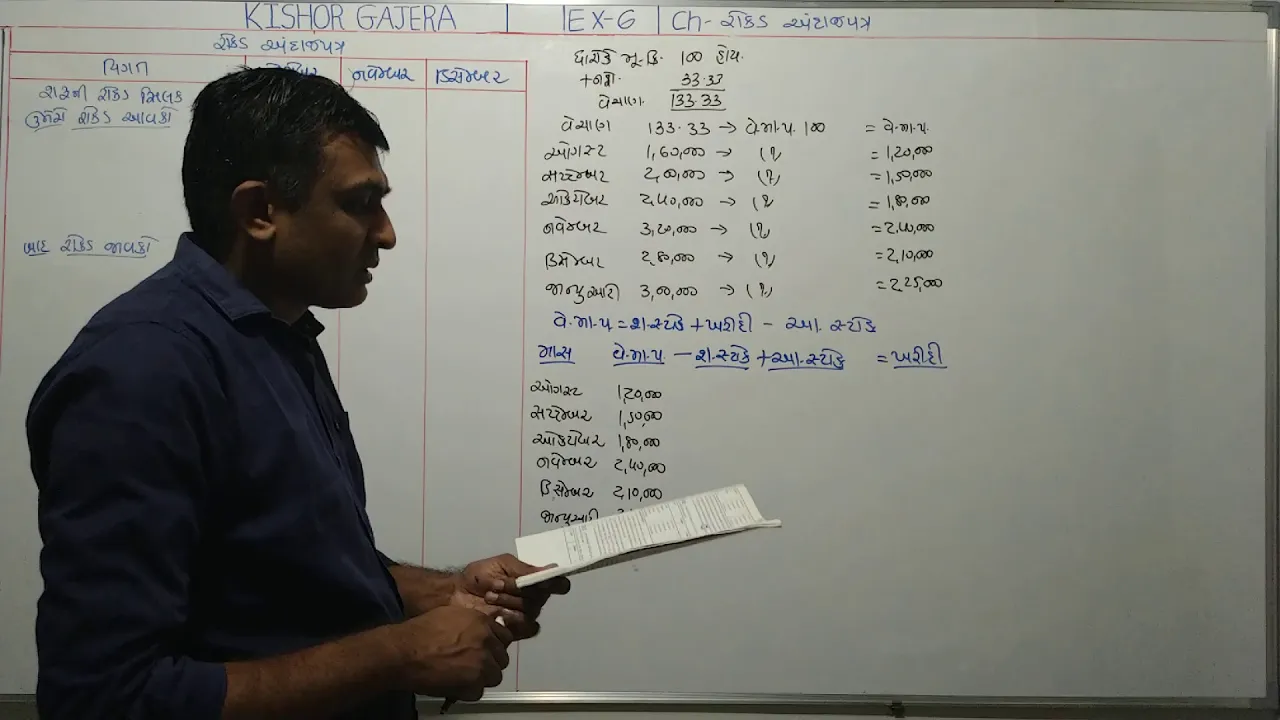 KISHOR GAJERA | EX-6 | Ch- રોકડ અંદાજપત્ર
રોકડ અંદાજપત્ર
વિગત નવેમ્બર ડિસેમ્બર
શરૂની રોકડ સિલક
ઉમેરો રોકડ આવકો
બાદ રોકડ જાવકો
ધારોકે મૂ.કિ. 100 હોય.
+નફો. 33.33
વેચાણ. 133.33
વેચાણ 133.33 → વે.મા.પ. 100 = વે.મા.પ.
ઓગસ્ટ 1,60,000 → (?) = 1,20,000
સપ્ટેમ્બર 2,00,000 → (?) = 1,50,000
ઓકટોબર 2,40,000 → (?) = 1,80,000
નવેમ્બર 3,20,000 → (?) = 2,40,000
ડિસેમ્બર 2,80,000 → (?) = 2,10,000
જાન્યુઆરી 3,00,000 → (?) = 2,25,000
વે.મા.પ = શ.સ્ટોક + ખરીદી - આ. સ્ટોક
માસ વે.મા.પ. - શ.સ્ટોક + આ.સ્ટોક = ખરીદી
ઓગસ્ટ 1,20,000
સપ્ટેમ્બર 1,50,000
ઓકટોબર 1,80,000
નવેમ્બર 2,40,000
ડિસેમ્બર 2,10,000
જાન્યુઆરી